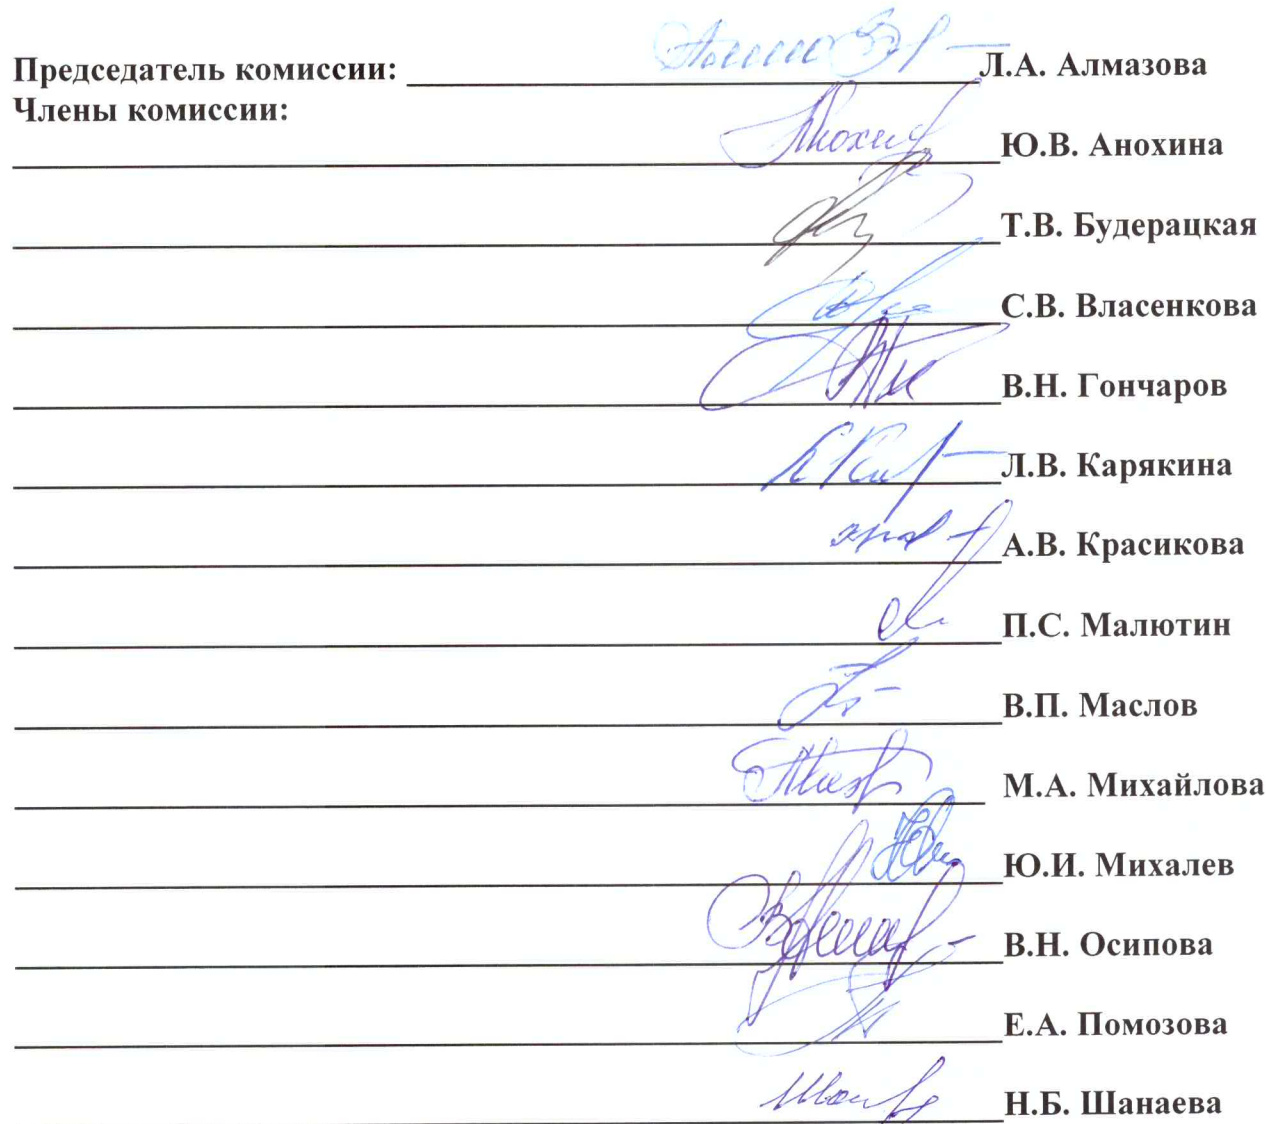 Председатель комиссии: Л.А. Алмазова
Члены комиссии:
Ю.В. Анохина
Т.В. Будерацкая
С.В. Власенкова
В.Н. Гончаров
Л.В. Карякина
А.В. Красикова
П.С. Малютин
В.П. Маслов
М.А. Михайлова
Ю.И. Михалев
В.Н. Осипова
Е.А. Помозова
Н.Б. Шанаева